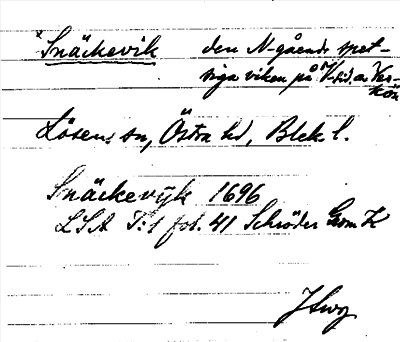 *Snäckevik den N-gående spet-
siga viken på V-sid. av Ver-
kön
Lösens sn, Östra hd, Blek l.
Snäckevijk 1696
LSA T:1 fol. 41 Schröder Grom K